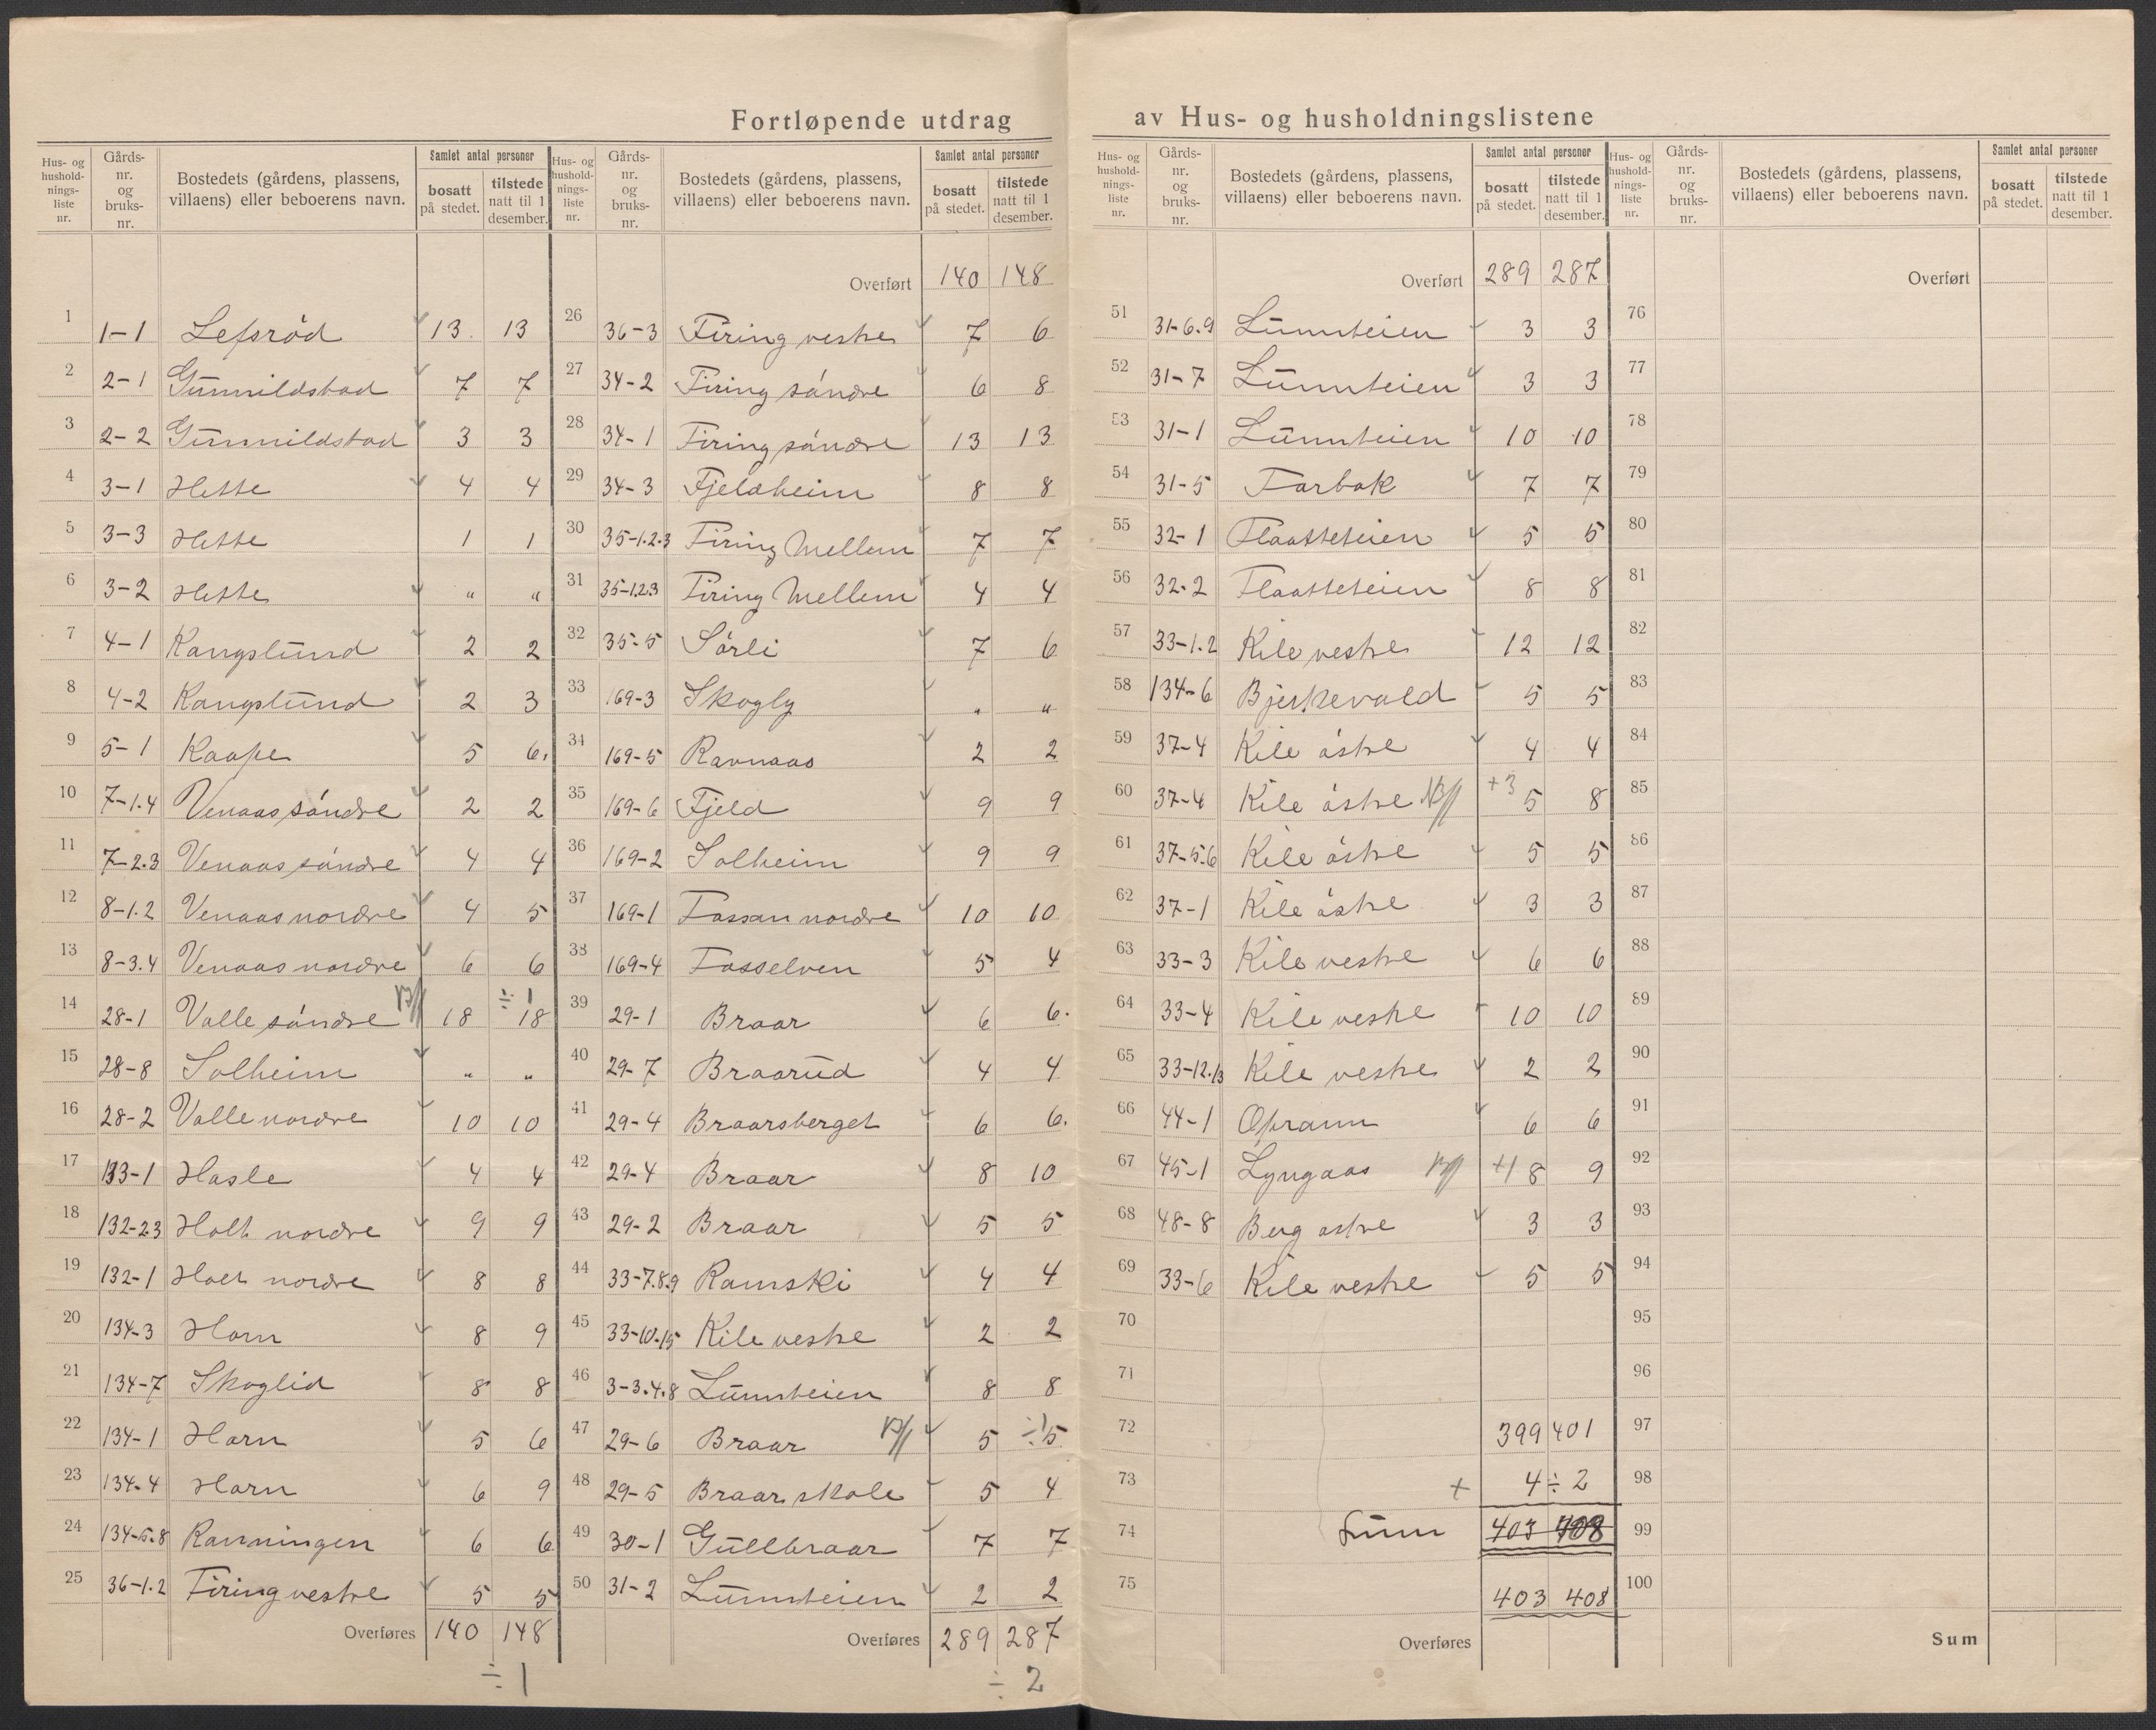 Fortløpende utdrag av Hus- og husholdningslistene
Hus- og hushold-nings-liste nr. | Gårds-nr. og bruks-nr. | Bostedets (gårdens, plassens, villaens) eller beboerens navn. | Samlet antal personer | bosatt på stedet. | tilstede natt til 1 desember.
1 1-1 Lefsröd 13 13
2 2-1 Gunnildstad 7 7
3 2-2 Gunnildstad 3 3
4 3-1 Hette 4 4
5 3-3 Hette 1 1
6 3-2 Hette " "
7 4-1 Kangslund 2 2
8 4-2 Kangslund 2 3
9 5-1 Kaape 5 6.
10 7-1.4 Venaas söndre 2 2
11 7-2.3 Venaas söndre 4 4
12 8-1.2 Venaas nordre 4 5
13 8-3.4 Venaas nordre 6 6
14 28-1 Valle söndre 18 ÷1 18
15 28-8 Solheim " "
16 28-2 Valle nordre 10 10
17 133-1 Hasle 4 4
18 132-23 Holt nordre 9 9
19 132-1 Holt nordre 8 8
20 134-3 Horn 8 9
21 134-7 Skoglid 8 8
22 134-1 Horn 5 6
23 134-4 Horn 6 9
24 134-5.8 Ranningen 6 6
25 36-1.2 Firing vestre 5 5
Overføres 140 148
÷ 1
Hus- og hushold-nings-liste nr. | Gårds-nr. og bruks-nr. | Bostedets (gårdens, plassens, villaens) eller beboerens navn. | Samlet antal personer | bosatt på stedet. | tilstede natt til 1 desember.
Overført 140 148
26 36-3 Firing vestre 7 6
27 34-2 Firing söndre 6 8
28 34-1 Firing söndre 13 13
29 34-3 Fjeldheim 8 8
30 35-1.2.3 Firing Mellem 7 7
31 35-1.2.3 Firing Mellem 4 4
32 35-5 Sörli 7 6
33 169-3 Skogly " "
34 169-5 Ravnaas 2 2
35 169-6 Fjeld 9 9
36 169-2 Solheim 9 9
37 169-1 Fossan nordre 10 10
38 169-4 Fosselven 5 4
39 29-1 Braar 6 6.
40 29-7 Braarud 4 4
41 29-4 Braarsberget 6 6.
42 29-4 Braar 8 10
43 29-2 Braar 5 5
44 33-7.8.9 Ramski 4 4
45 33-10.15 Kile vestre 2 2
46 3-3.4.8 Lunnteien 8 8
47 29-6 Braar 5 ÷1 5
48 29-5 Braar skole 5 4
49 30-1 Gullbraar 7 7
50 31-2 Lunnteien 2 2
Overføres 289 287
÷ 2
Hus- og hushold-nings-liste nr. | Gårds-nr. og bruks-nr. | Bostedets (gårdens, plassens, villaens) eller beboerens navn. | Samlet antal personer | bosatt på stedet. | tilstede natt til 1 desember.
Overført 289 287
51 31-6.9 Lunnteien 3 3
52 31-7 Lunnteien 3 3
53 31-1 Lunnteien 10 10
54 31-5 Torbok 7 7
55 32-1 Flaatteteien 5 5
56 32-2 Flaatteteien 8 8
57 33-1.2 Kile vestre 12 12
58 134-6 Bjerkevold 5 5
59 37-4 Kile östre 4 4
60 37-4 Kile östre NB +3 5 8
61 37-5.6 Kile östre 5 5
62 37-1 Kile östre 3 3
63 33-3 Kile vestre 6 6
64 33-4 Kile vestre 10 10
65 33-12.13 Kile vestre 2 2
66 44-1 Oprann 6 6
67 45-1 Lyngaas +1 8 9
68 48-8 Berg östre 3 3
69 33-6 Kile vestre 5 5
70
71
72 399 401
73 + 4 ÷ 2
74 Sum 403 408
75 403 408
Overføres
Hus- og hushold-nings-liste nr. | Gårds-nr. og bruks-nr. | Bostedets (gårdens, plassens, villaens) eller beboerens navn. | Samlet antal personer | bosatt på stedet. | tilstede natt til 1 desember.
Overført
76
77
78
79
80
81
82
83
84
85
86
87
88
89
90
91
92
93
94
95
96
97
98
99
100
Sum